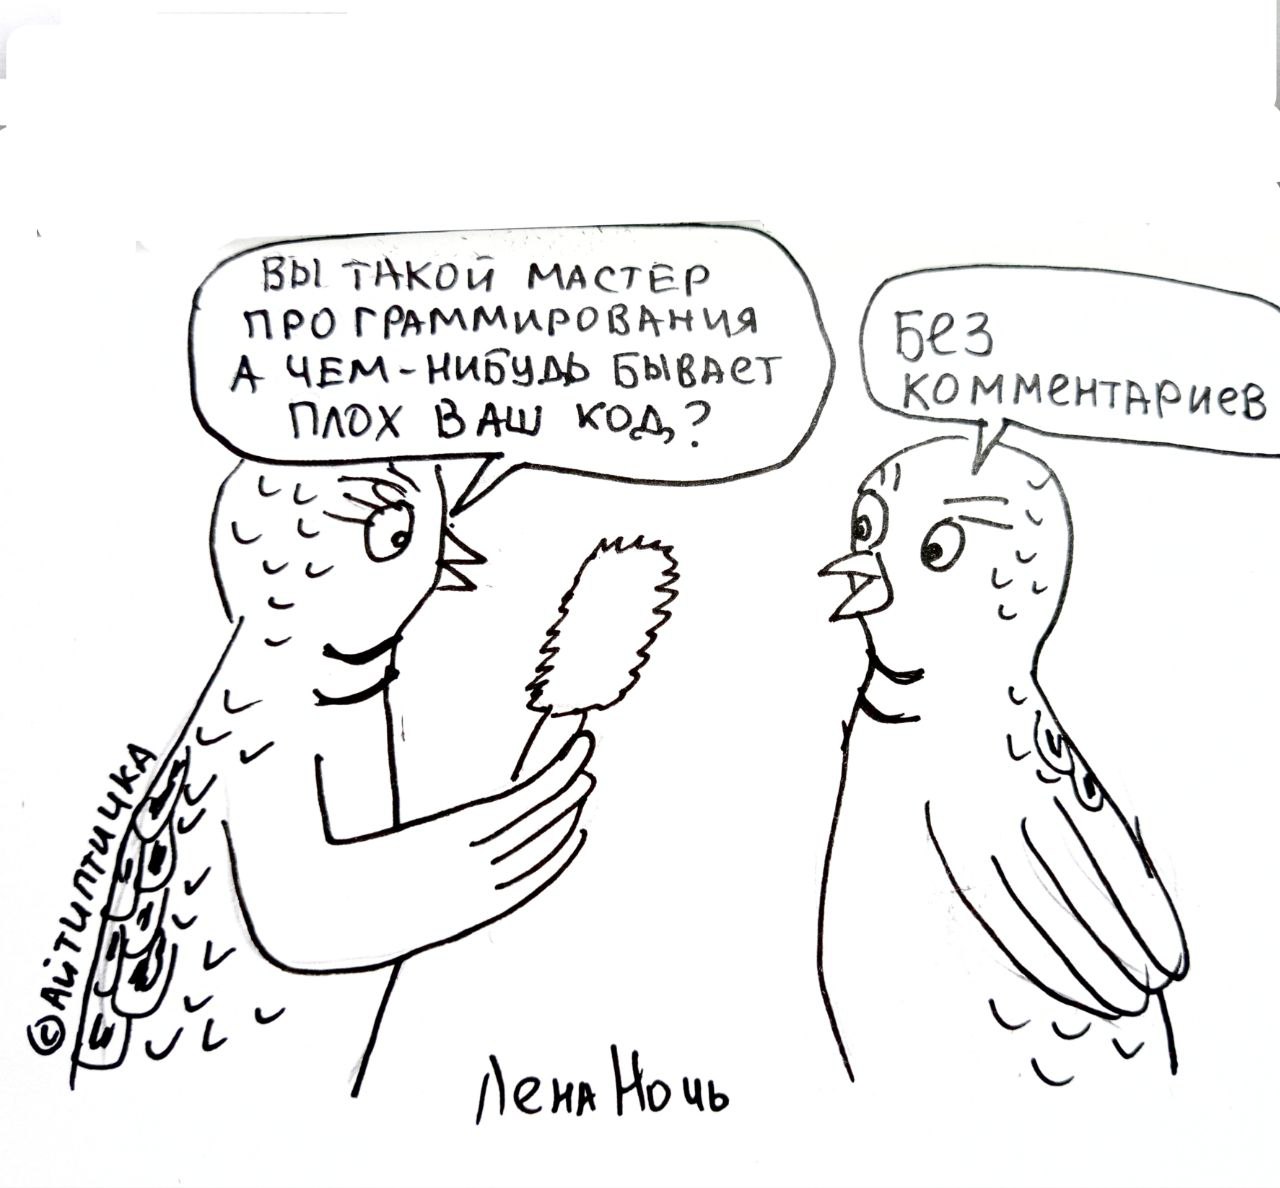 ВЫ ТАКОЙ МАСТЕР
ПРОГРАММИРОВАНИЯ
А ЧЕМ-НИБУДЬ БЫВАЕТ
ПЛОХ ВАШ КОД?
БЕЗ
КОММЕНТАРИЕВ
©АЙТИПТИЧКА
Лена Ночь